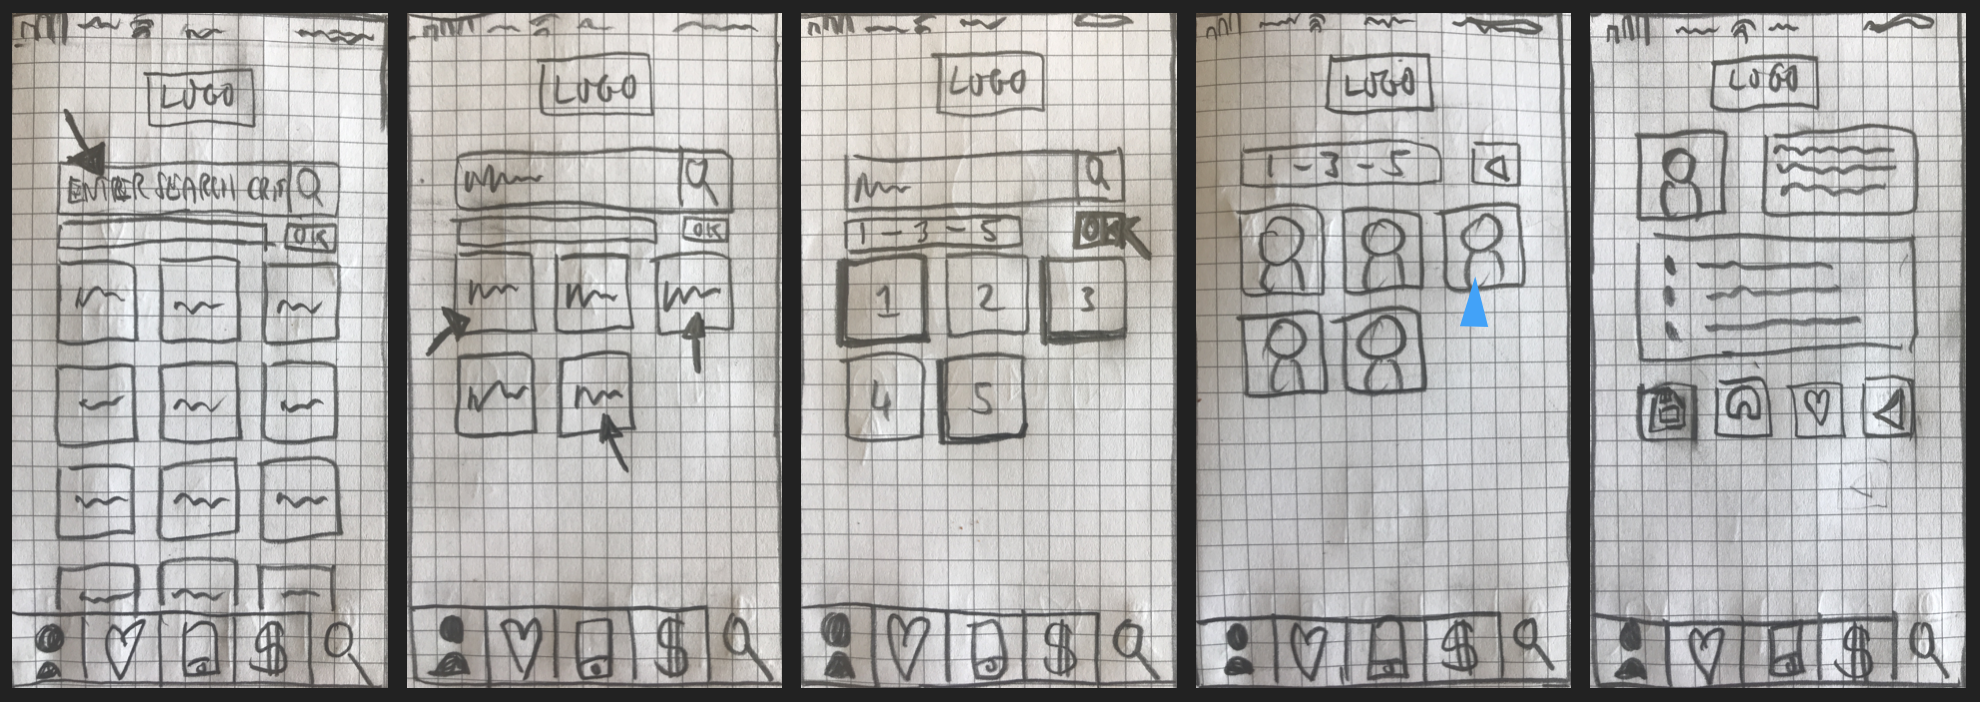 LOGO
ENTER SEARCH CRIT
OK
$
LOGO
OK
$
LOGO
1-3-5
OK
1 2 3
4 5
$
LOGO
1-3-5
$
LOGO
$